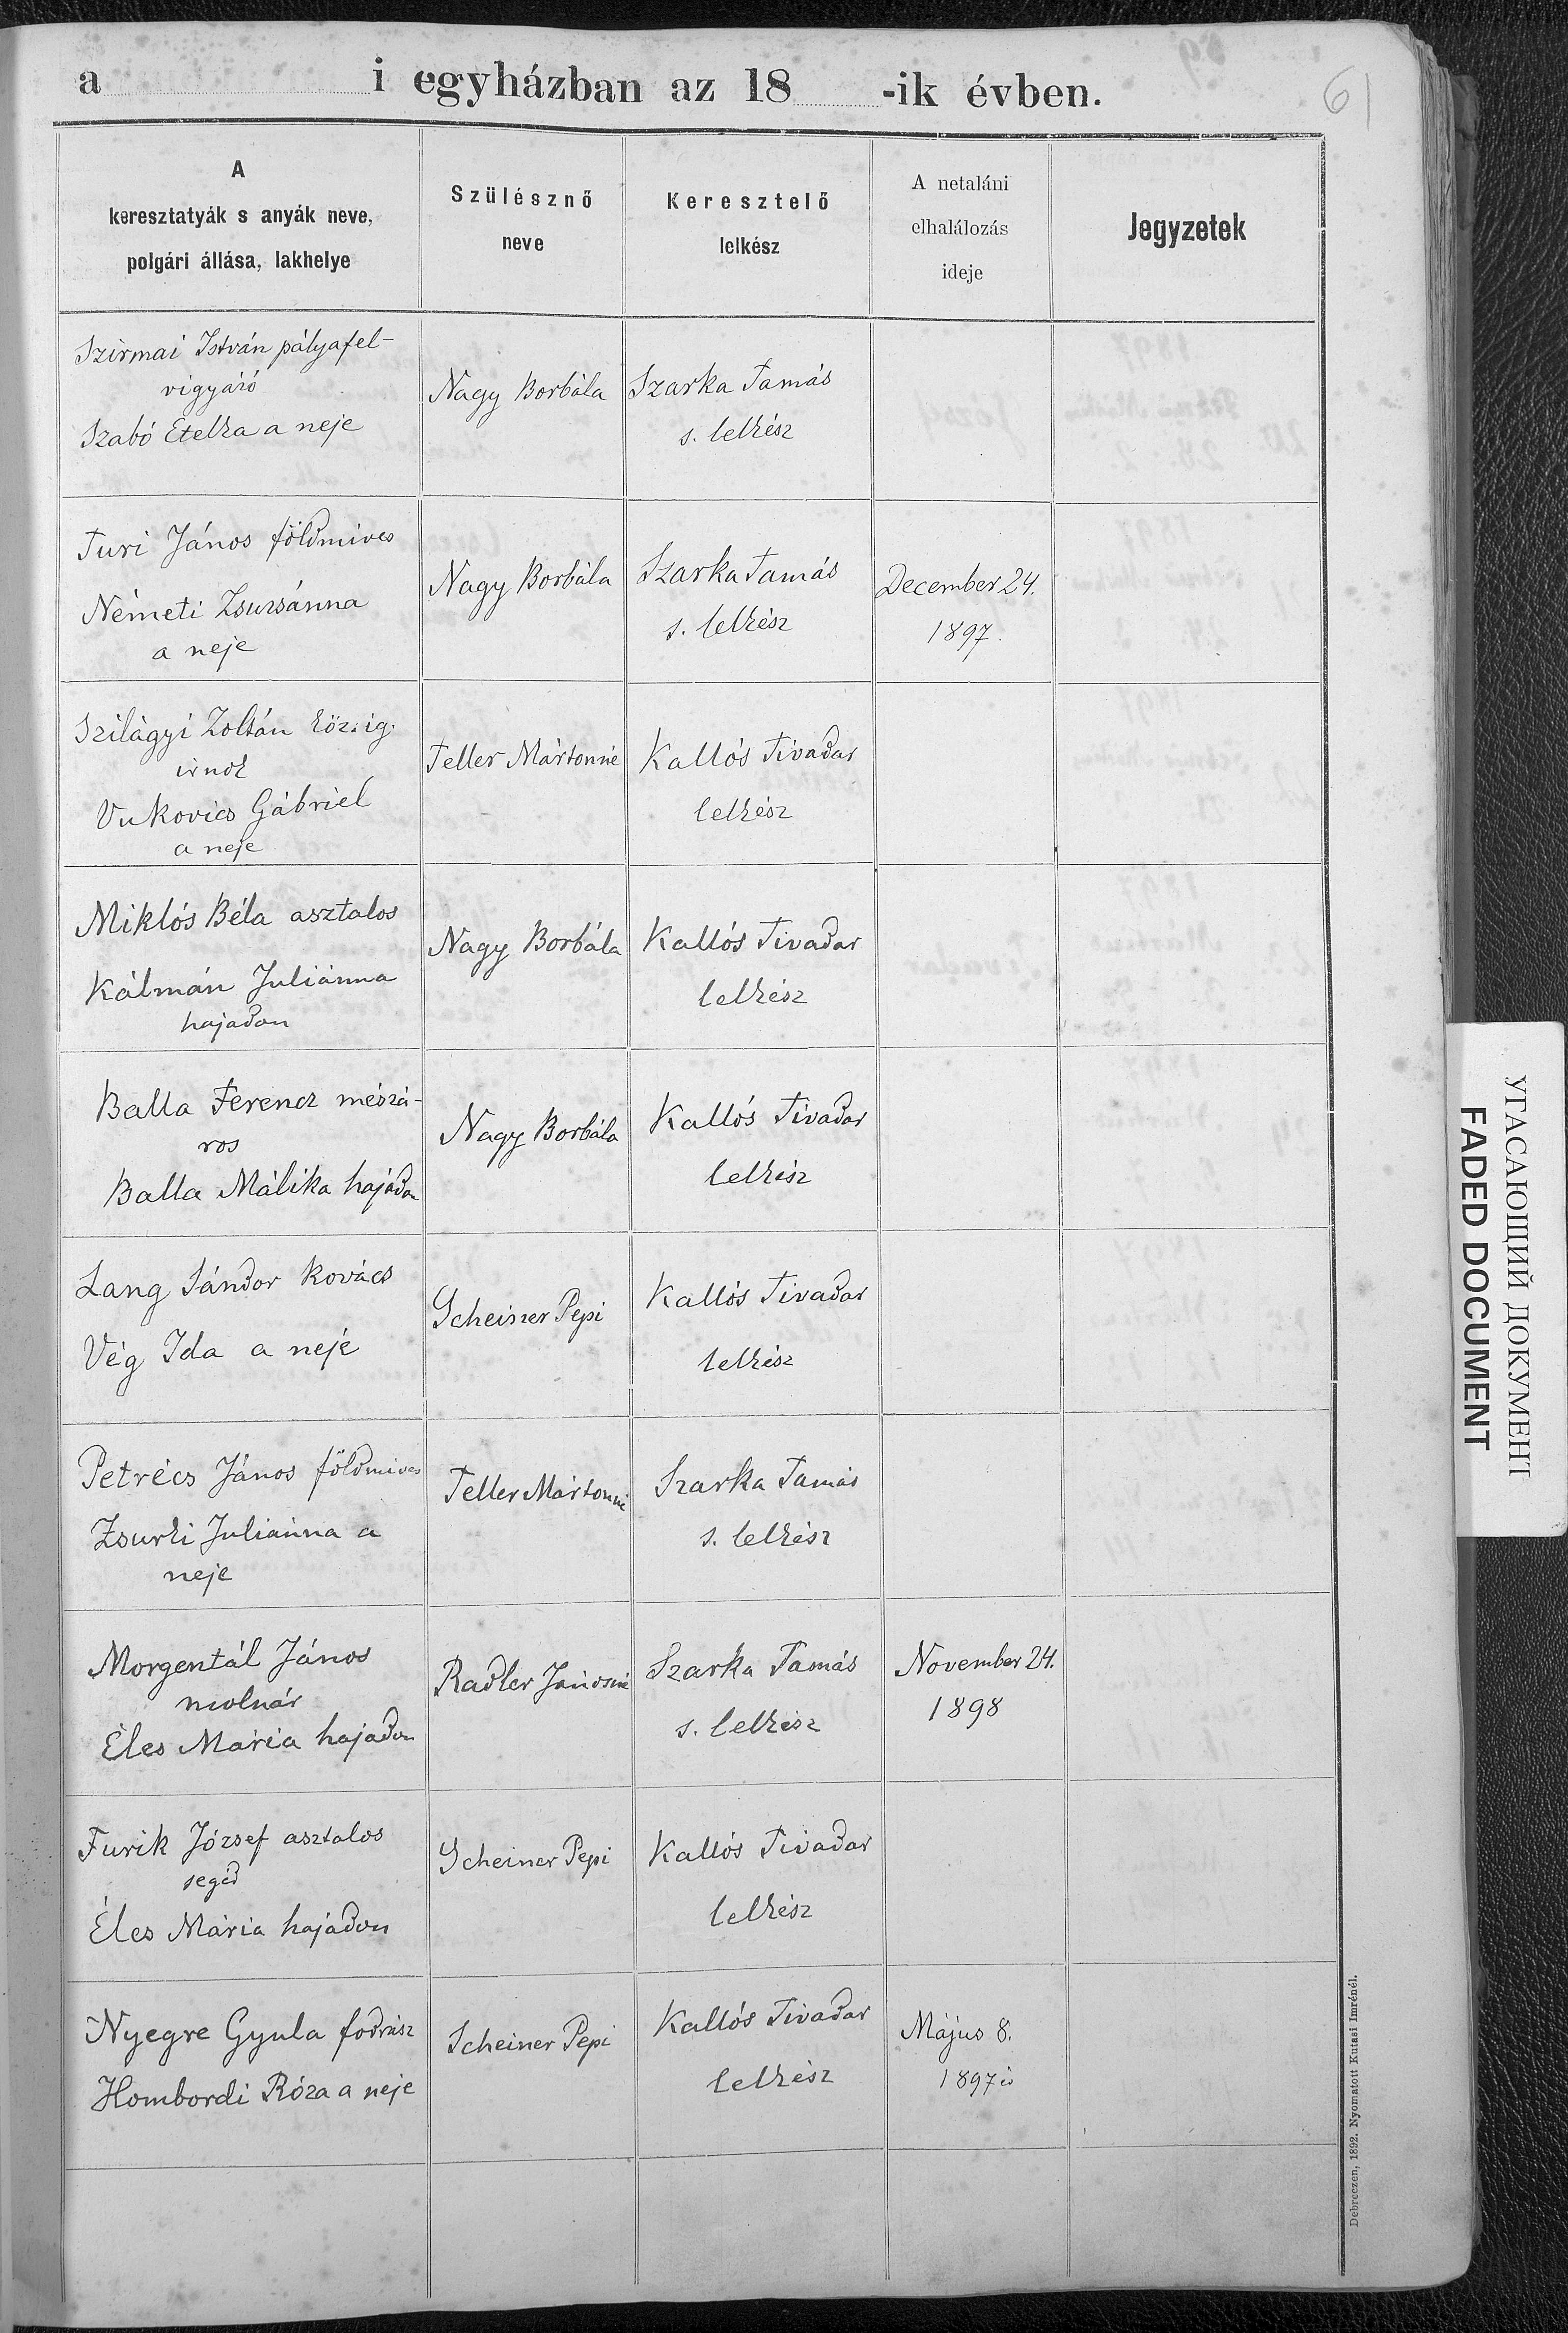 a i egyházban az 18 -ik évben.
61
A
keresztatyák s anyák neve,
polgári állása, lakhelye
Szülésznő
neve
Keresztelő
lelkész
A netaláni
elhalálozás
ideje
Jegyzetek
Szirmai István pályafel-
vigyázó
Szabó Etelka a neje
Nagy Borbála
Szarka Tamás
s. lelkész
Turi János földmives
Németi Zsuzsánna
a neje
Nagy Borbála
Szarka Tamás
s. lelkész
December 24.
1897.
Szilágyi Zoltán köz. ig.
irnok
Vukovics Gábriel
a neje
Teller Mártonné
Kallós Tivadar
lelkész
Miklós Béla asztalos
Kálmán Juliánna
hajadon
Nagy Borbála
Kallós Tivadar
lelkész
Balla Ferencz mészá-
ros
Balla Málika hajadon
Nagy Borbála
Kallós Tivadar
lelkész
Lang Sándor kovács
Vég Ida a neje
Scheiner Pepi
Kallós Tivadar
lelkész
Petrécs János földmives
Zsurki Juliánna a
neje
Teller Mártonné
Szarka Tamás
s. lelkész
Morgentál János
molnár
Éles Mária hajadon
Radler Jánosné
Szarka Tamás
s. lelkész
November 24.
1898
Furik József asztalos
segéd
Éles Mária hajadon
Scheiner Pepi
Kallós Tivadar
lelkész
Nyegre Gyula fodrász
Hombordi Róza a neje
Scheiner Pepi
Kallós Tivadar
lelkész
Május 8.
1897
Debreczen, 1892. Nyomatott Kutasi Imrénél.
УГАСАЮЩИЙ ДОКУМЕНТ
FADED DOCUMENT